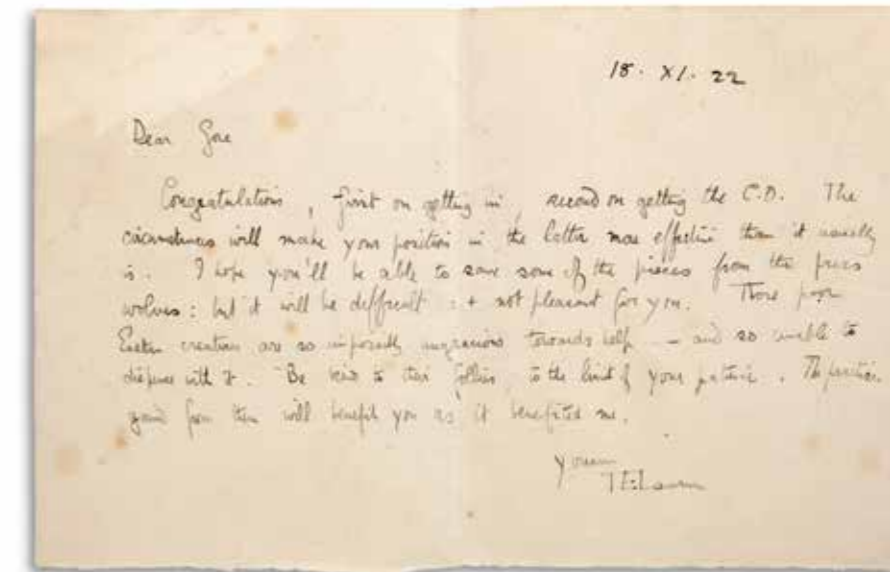 18. XI. 22
Dear Gore
Congratulations, first on getting in, second on getting the C.O. The
circumstances will make your position in the latter more effective than it usually
is. I hope you'll be able to save some of the pieces from the press
wolves: but it will be difficult: + not pleasant for you. Those poor
Eastern creatures are so ungracious towards help — and so unable to
dispense with it. Be kind to their follies, to the limit of your patience. The
from them will benefit you as it benefited me.
Yours
T E Lawrence